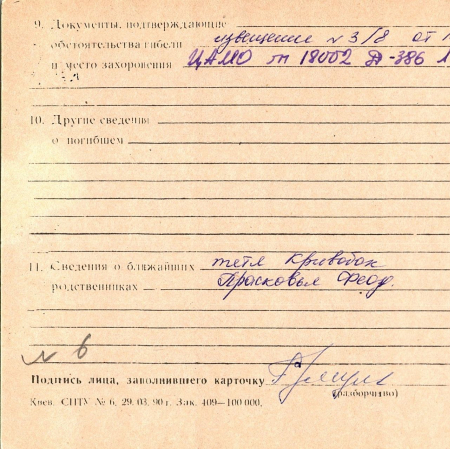 9. Документы, подтверждающие
обстоятельства гибели извещение № 3/8 от
и место захоронения ЦАМО т 18002 Д-386
10. Другие сведения
о погибшем
11. Сведения о ближайших тетя Кривобок
родственниках Прасковья Феод.
№ 6
Подпись лица, заполнившего карточку
(разборчиво)
Киев. СПТУ № 6. 29. 03. 90 г. Зак. 409—100 000.